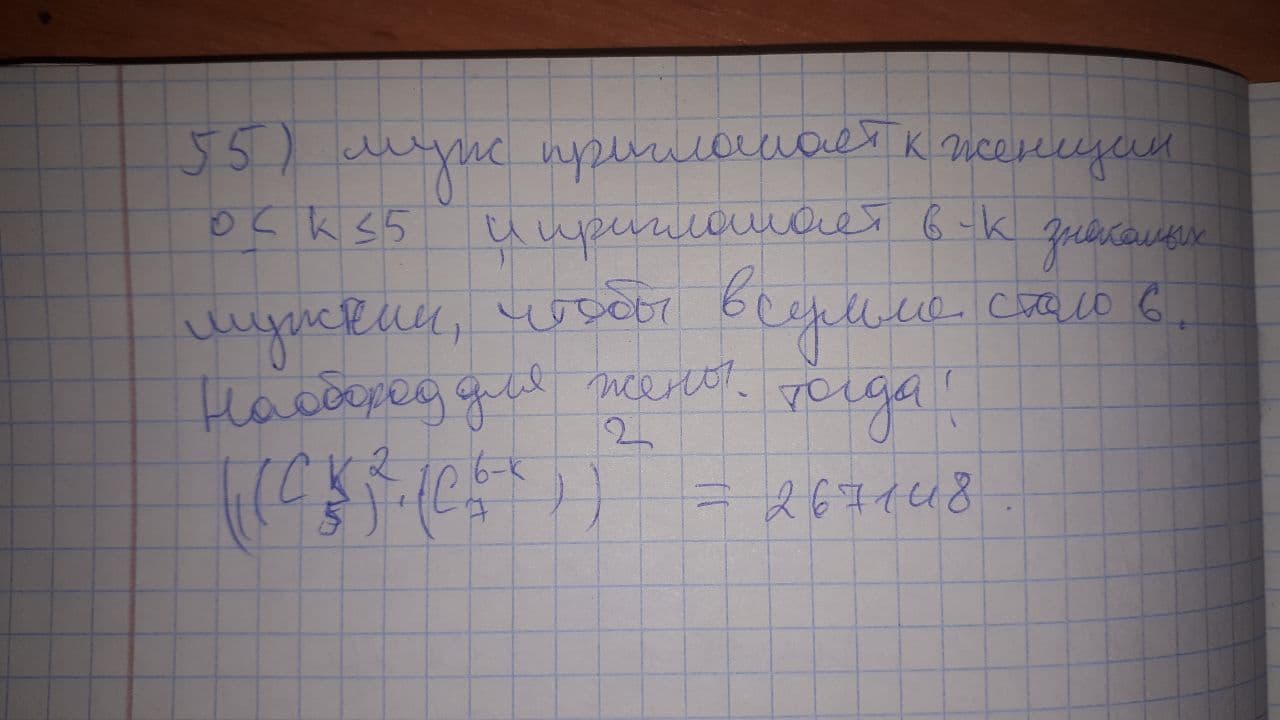 55) муж приглашает к женщин
0 ≤ k ≤ 5 и приглашает 6-к знакомых
мужчин, чтобы в сумме стало 6.
Наобород для жены. тогда!
((C₅ᵏ)²·(C₇⁶⁻ᵏ))² = 267148.